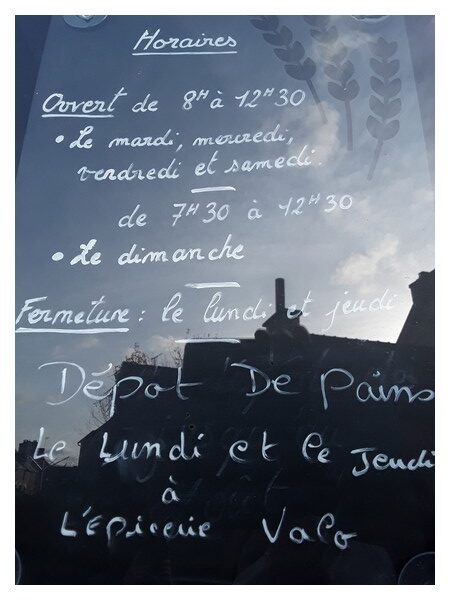 Horaires
Ouvert de 8H à 12H30
• Le mardi, mercredi,
vendredi et samedi.
de 7H30 à 12H30
• Le dimanche
Fermeture : le lundi et jeudi
Dépot De Pains
Le Lundi et le Jeudi
à
L'Epicerie Valo